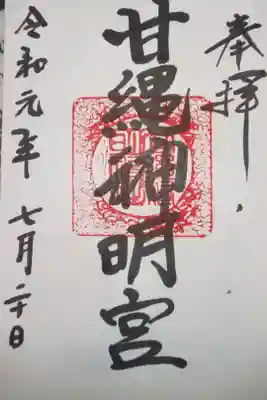 奉拝
甘縄神明宮
令和元年七月二十日